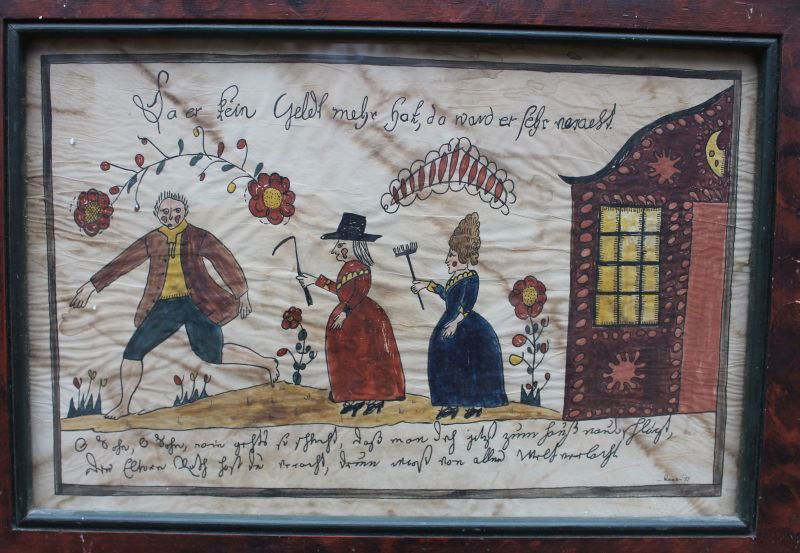 Da er kein Geldt mehr hat, da ward er sehr veracht.
O Sohn, O Sohn, wie gehts so schlecht, daß man dich jetzt zum Hauß naus schlägt,
der Eltern Rath hast du veracht, drum wirst von aller Welt verlacht.